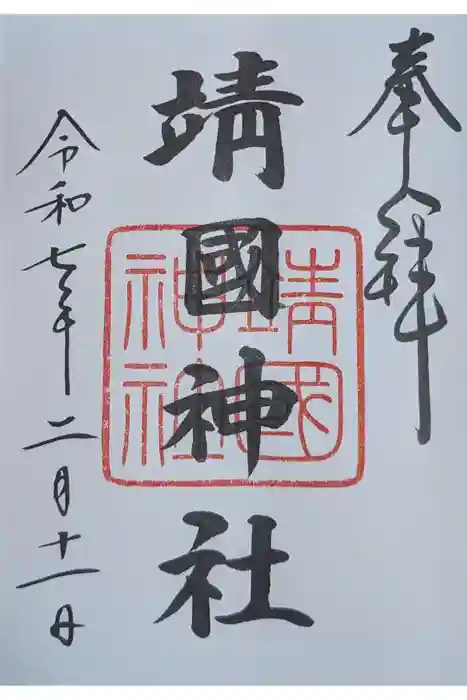 奉拝
靖國神社
靖国
神社
令和七年二月十一日